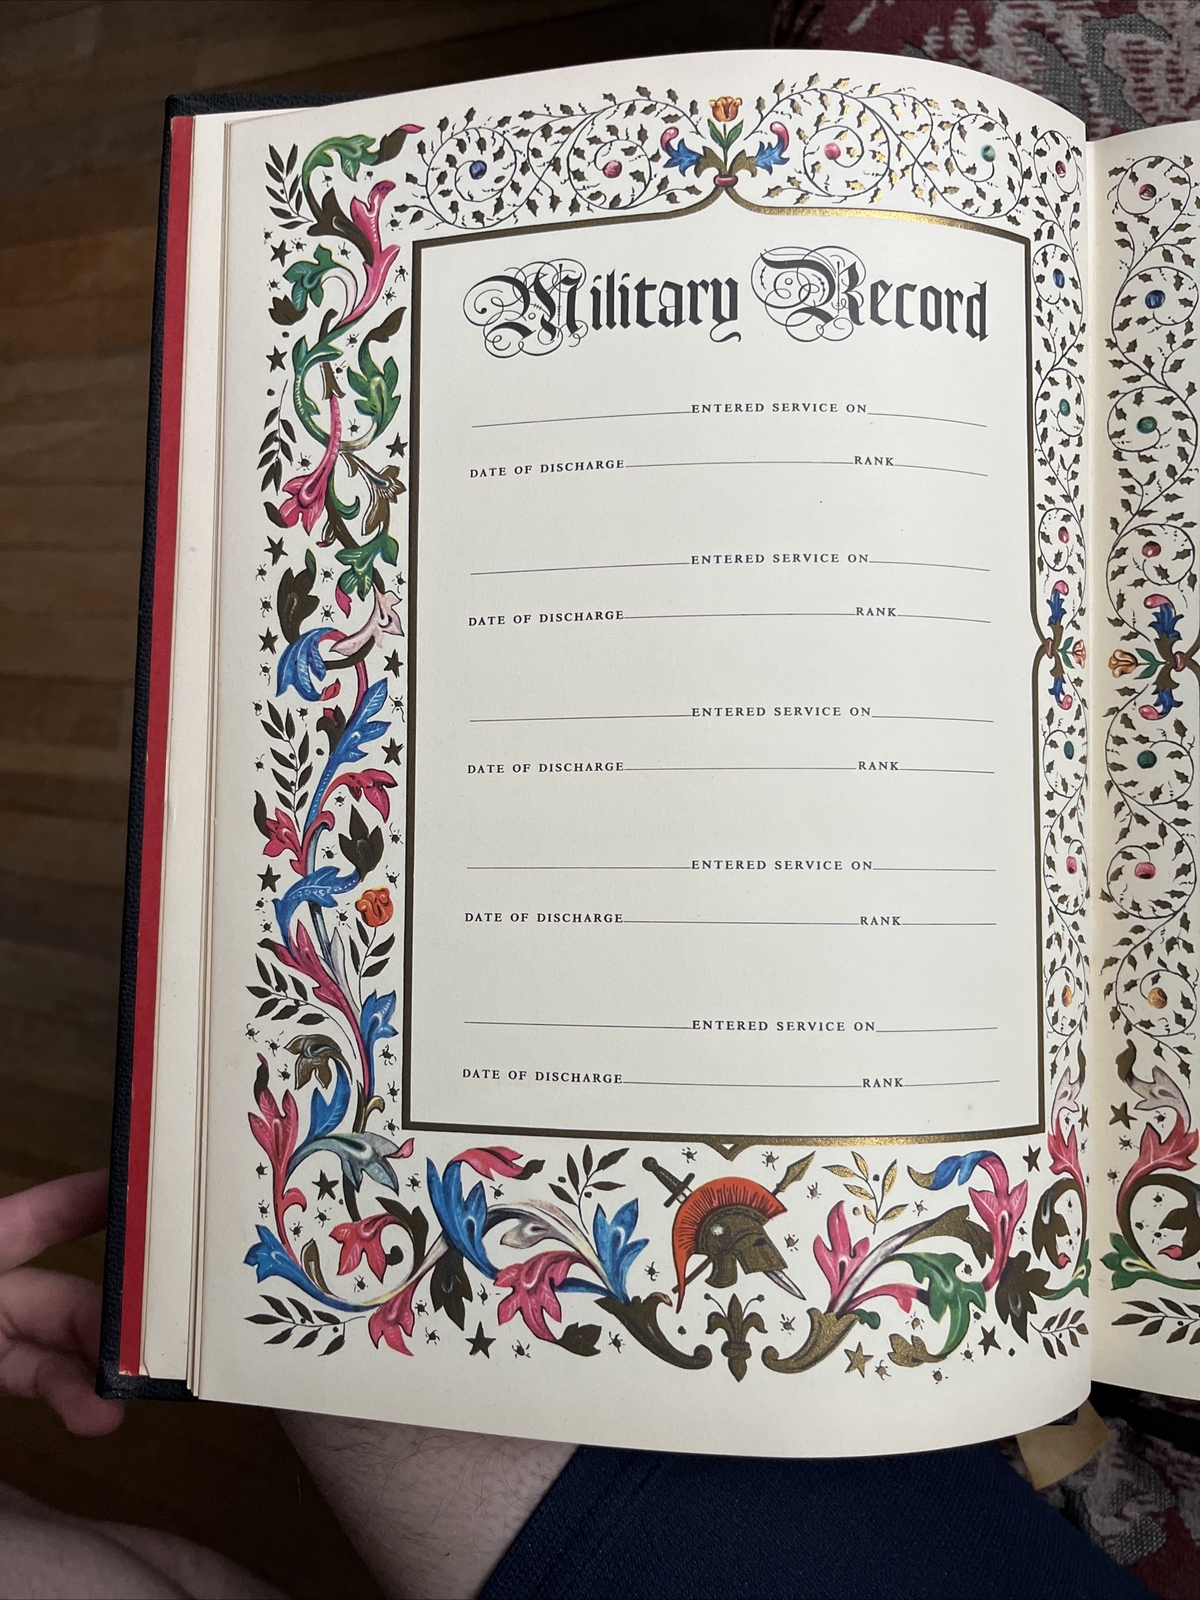 Military Record
ENTERED SERVICE ON
DATE OF DISCHARGE RANK
ENTERED SERVICE ON
DATE OF DISCHARGE RANK
ENTERED SERVICE ON
DATE OF DISCHARGE RANK
ENTERED SERVICE ON
DATE OF DISCHARGE RANK
ENTERED SERVICE ON
DATE OF DISCHARGE RANK